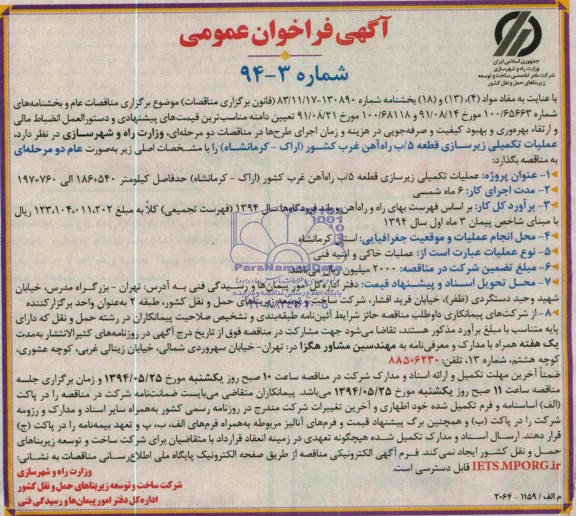 جمهوری اسلامی ایران
وزارت راه و شهرسازی
شرکت مادر تخصصی ساخت و توسعه
زیربناهای حمل و نقل کشور
آگهی فراخوان عمومی
شماره ۳-۹۴
با عنایت به مفاد مواد (۴)، (۱۳) و (۱۸) بخشنامه شماره ۱۳۰۸۹۰-۸۳/۱۱/۱۷ (قانون برگزاری مناقصات) موضوع برگزاری مناقصات عام و بخشنامه‌های
شماره ۱۰۰/۶۵۶۶۳ مورخ ۹۱/۰۸/۱۴ و ۱۰۰/۶۸۱۱۸ مورخ ۹۱/۰۸/۲۱ تعیین دامنه مناسب‌ترین قیمت‌های پیشنهادی و دستورالعمل انضباط مالی
و ارتقاء بهره‌وری و بهبود کیفیت و صرفه‌جویی در هزینه و زمان اجرای طرح‌ها در مناقصات دو مرحله‌ای، وزارت راه و شهرسازی در نظر دارد،
عملیات تکمیلی زیرسازی قطعه ۵/ب راه‌آهن غرب کشور (اراک - کرمانشاه) را با مشخصات اصلی زیر به‌صورت عام دو مرحله‌ای
به مناقصه بگذارد:
۱- عنوان پروژه: عملیات تکمیلی زیرسازی قطعه ۵/ب راه‌آهن غرب کشور (اراک - کرمانشاه) حدفاصل کیلومتر ۱۸۶+۵۴۰ الی ۱۹۷+۷۶۰
۲- مدت اجرای کار: ۶ ماه شمسی
۳- برآورد کل کار: بر اساس فهرست بهای راه و راه‌آهن و باند فرودگاه‌ها سال ۱۳۹۴ (فهرست تجمیعی) کلاً به مبلغ ۱۲۳،۱۰۴،۰۱۱،۲۰۲ ریال
با مبنای شاخص پیمان ۳ ماه اول سال ۱۳۹۴
۴- محل انجام عملیات و موقعیت جغرافیایی: استان کرمانشاه
۵- نوع عملیات عبارت است از: عملیات خاکی و ابنیه فنی
۶- مبلغ تضمین شرکت در مناقصه: ۲۰۰۰ میلیون ریال می‌باشد.
۷- محل تحویل اسناد و پیشنهاد قیمت: دفتر اداره‌کل امور پیمان‌ها و رسیدگی فنی به آدرس: تهران - بزرگراه مدرس، خیابان
شهید وحید دستگردی (ظفر)، خیابان فرید افشار، شرکت ساخت و توسعه زیربناهای حمل و نقل کشور، طبقه ۲ به‌عنوان واحد برگزارکننده
۸- از شرکت‌های پیمانکاری داوطلب مناقصه حائز شرایط آئین‌نامه طبقه‌بندی و تشخیص صلاحیت پیمانکاران در رشته حمل و نقل که دارای
پایه متناسب با مبلغ برآورد مذکور هستند، تقاضا می‌شود جهت مشارکت در مناقصه فوق از تاریخ درج آگهی در روزنامه‌های کثیرالانتشار به‌مدت
یک هفته همراه با مدارک و معرفی‌نامه به مهندسین مشاور هگزا در: تهران- خیابان سهروردی شمالی، خیابان زینالی غربی، کوچه عشوری،
کوچه هشتم، شماره ۱۳، تلفن: ۸۸۵۰۶۲۳۰
ضمناً آخرین مهلت تکمیل و ارائه اسناد و مدارک شرکت در مناقصه ساعت ۱۰ صبح روز یکشنبه مورخ ۱۳۹۴/۰۵/۲۵ و زمان برگزاری جلسه
مناقصه ساعت ۱۱ صبح روز یکشنبه مورخ ۱۳۹۴/۰۵/۲۵ می‌باشد. پیمانکاران متقاضی می‌بایست ضمانت‌نامه شرکت در مناقصه را در پاکت
(الف) اساسنامه و فرم تکمیل شده خود اظهاری و آخرین تغییرات شرکت مندرج در روزنامه رسمی کشور به‌همراه سایر اسناد و مدارک و رزومه
شرکت را در پاکت (ب) و همچنین برگ پیشنهاد قیمت و فرم‌های آنالیز مربوطه به‌همراه فرم‌های الف، ب، پ و تعهد بیمه‌نامه را در پاکت (ج)
قرار دهند. ارسال اسناد و مدارک تکمیل شده هیچگونه تعهدی در زمینه انعقاد قرارداد با متقاضیان برای شرکت ساخت و توسعه زیربناهای
حمل و نقل کشور ایجاد نمی‌کند. فرم آگهی الکترونیکی مناقصه از طریق صفحه الکترونیک پایگاه ملی اطلاع‌رسانی مناقصات به نشانی:
IETS.MPORG.ir قابل دسترسی است.
وزارت راه و شهرسازی
شرکت ساخت و توسعه زیربناهای حمل و نقل کشور
اداره‌کل دفتر امور پیمان‌ها و رسیدگی فنی
م الف / ۱۱۵۹ - ۲۰۶۴
ParsNamadData